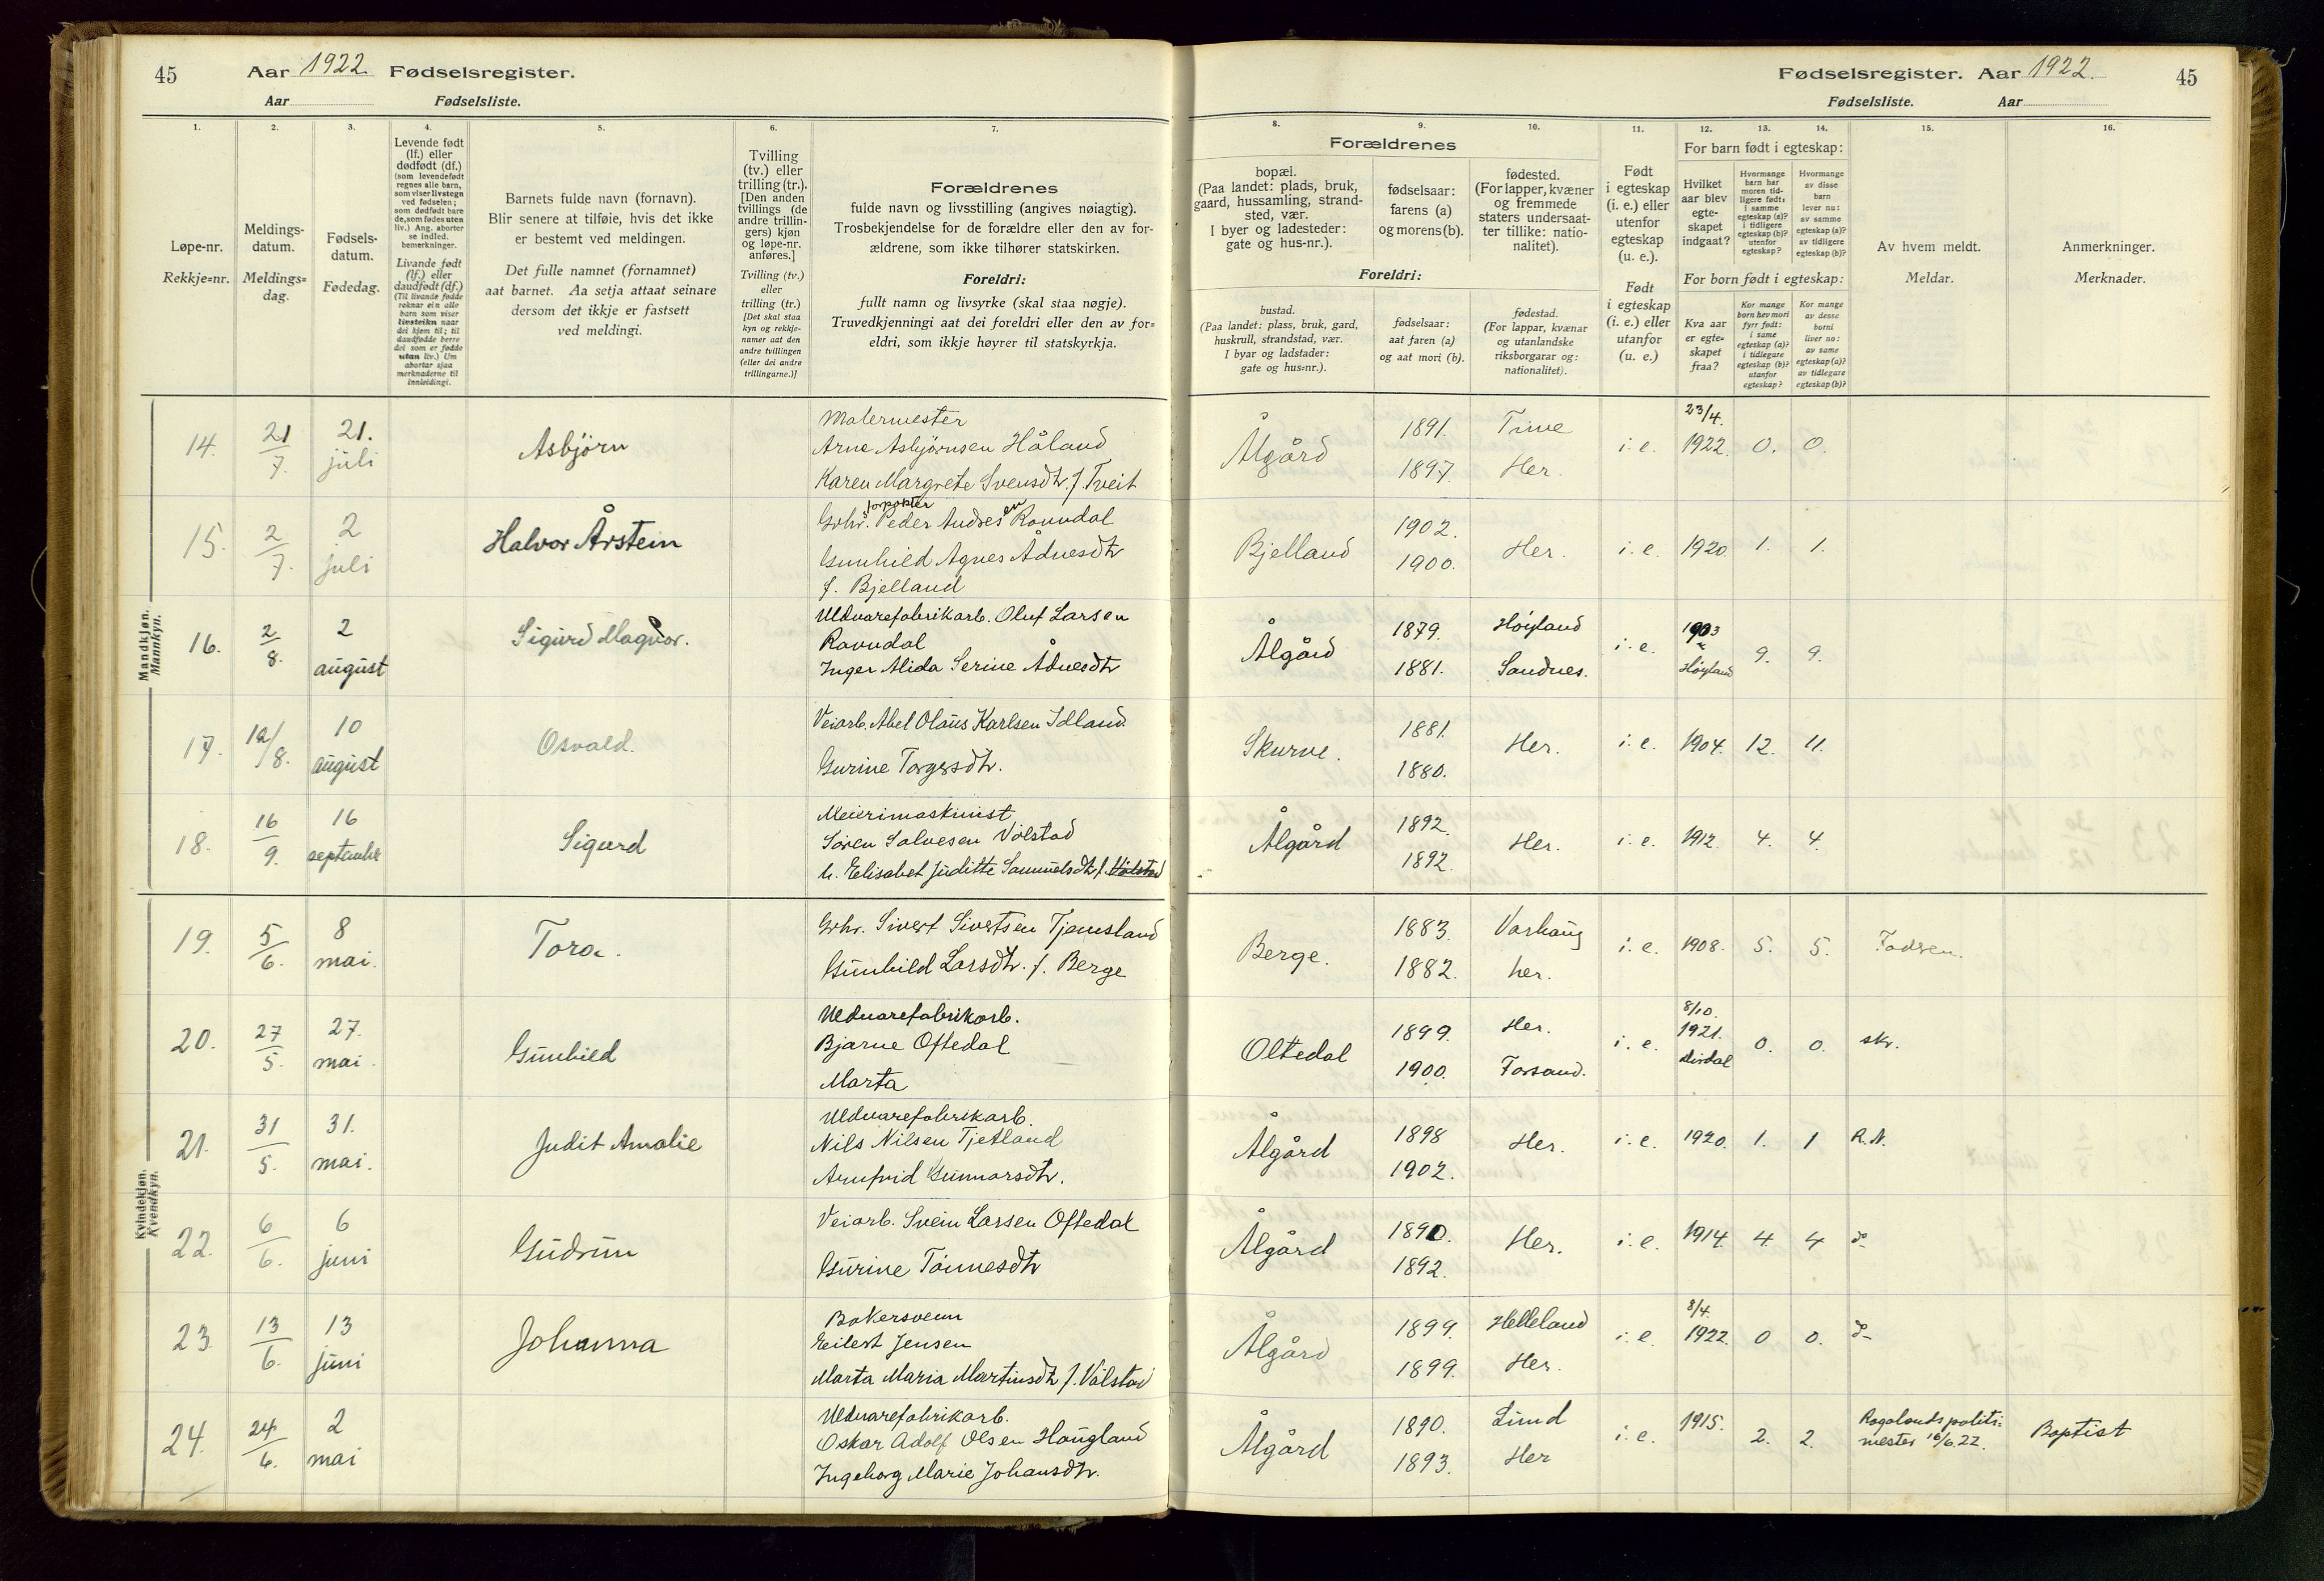 45 Aar 1922. Fødselsregister.
Aar Fødselsliste.
Fødselsregister. Aar 1922. 45
Fødselsliste. Aar
1. 2. 3. 4. 5. 6. 7.
Løpe-nr.
Rekkje=nr.
Meldings-
datum.
Meldings=
dag.
Fødsels-
datum.
Fødedag.
Levende født
(lf.) eller
dødfødt (df.)
(som levendefødt
regnes alle barn,
som viser livstegn
ved fødselen;
som dødfødt bare
de, som fødes uten
liv.) Ang. aborter
se indled.
bemerkninger.
Livande født
(lf.) eller
daudfødt (df.)
(Til livande fødde
reknar ein alle
barn som viser
livsteikn naar
dei kjem til; til
daudfødde berre
dei som er fødde
utan liv.) Um
abortar sjaa
merknaderne til
innleidingi.
Barnets fulde navn (fornavn).
Blir senere at tilføie, hvis det ikke
er bestemt ved meldingen.
Det fulle namnet (fornamnet)
aat barnet. Aa setja attaat seinare
dersom det ikkje er fastsett
ved meldingi.
Tvilling
(tv.) eller
trilling (tr.).
[Den anden
tvillings (de
andre trillin-
gers) kjøn
og løpe-nr.
anføres.]
Tvilling (tv.)
eller
trilling (tr.)
[Det skal staa
kyn og rekkje-
numer aat den
andre tvillingen
(eller dei andre
trillingarne.)]
Forældrenes
fulde navn og livsstilling (angives nøiagtig).
Trosbekjendelse for de forældre eller den av for-
ældrene, som ikke tilhører statskirken.
Foreldri:
fullt namn og livsyrke (skal staa nøgje).
Truvedkjenningi aat dei foreldri eller den av for=
eldri, som ikkje høyrer til statskyrkja.
8. 9. 10. 11. 12. 13. 14. 15. 16.
Forældrenes
bopæl.
(Paa landet: plads, bruk,
gaard, hussamling, strand-
sted, vær.
I byer og ladesteder:
gate og hus-nr.).
fødselsaar:
farens (a)
og morens (b).
fødested.
(For lapper, kvæner
og fremmede
staters undersaat-
ter tillike: natio-
nalitet).
Foreldri:
bustad.
(Paa landet: plass, bruk, gard,
huskrull, strandstad, vær.
I byar og ladstader:
gate og hus=nr.).
fødselsaar:
aat faren (a)
og aat mori (b).
fødestad.
(For lappar, kvænar
og utanlandske
riksborgarar og:
nationalitet).
Født
i egteskap
(i. e.) eller
utenfor
egteskap
(u. e.).
Født
i egteskap
(i. e.) eller
utanfor
(u. e.)
For barn født i egteskap:
Hvilket
aar blev
egte-
skapet
indgaat?
Hvormange
barn har
moren tid-
ligere født:
i samme
egteskap (a)?
i tidligere
egteskap (b)?
utenfor
egteskap?
Hvormange
av disse
barn
lever nu:
av samme
egteskap (a)?
av tidligere
egteskap (b)?
For born født i egteskap:
Kva aar
er egte=
skapet
fraa?
Kor mange
born hev mori
fyrr født:
i same
egteskap (a)?
i tidlegare
egteskap (b)?
utanfor
egteskap?
Kor mange
av desse
borni
liver no:
av same
egteskap (a)?
av tidlegare
egteskap (b)?
Av hvem meldt.
Meldar.
Anmerkninger.
Merknader.
Mandkjøn.
Mannkyn.
14. 21/7. 21. juli Asbjörn
Malermester
Arne Asbjørnsen Håland
Karen Margrete Svensdtr. f. Tveit
Ålgård 1891. 1897. Time Her. i. e. 23/4. 1922. 0. 0.
15. 2/7. 2 juli Halvor Årstein
Grbr. forpakter Peder Andres en Ravndal
Gunhild Agnes Ådnesdtr
f. Bjelland
Bjelland 1902. 1900. Her. i. e. 1920. 1. 1.
16. 2/8. 2 august Sigurd Magnor.
Uldvarefabrikarb. Oluf Larsen
Ravndal
Inger Alida Serine Ådnesdtr
Ålgård 1879. 1881. Höyland Sandnes. i. e. 1903 Höyland 9. 9.
17. 10/8. 10 august Osvald.
Veiarb. Abel Olaus Karlsen Idland
Gurine Torgersdtr.
Skurve. 1881. 1880. Her. i. e. 1904. 12. 11.
18. 16/9. 16 september Sigurd
Meierimaskinist
Sören Salvesen Völstad
h. Elisabet Juditte Samuelsdtr f. Völstad
Ålgård 1892. 1892. Her. i. e. 1912. 4. 4.
Kvindekjøn.
Kvendkyn.
19. 5/6. 8 mai. Tora.
Grbr. Sivert Sivertsen Tjemsland
Gunhild Larsdtr. f. Berge
Berge. 1883. 1882. Varhaug her. i. e. 1908. 5. 5. Fadren.
20. 27/5. 27. mai. Gunhild
Uldvarefabrikarb.
Bjarne Oftedal
Marta
Oltedal 1899. 1900. Her. Forsand. i. e. 8/10. 1921. Dirdal 0. 0. skr.
21. 31/5. 31. mai. Judit Amalie
Uldvarefabrikarb.
Nils Nilsen Tjetland
Arnfrid Gunnarsdtr.
Ålgård 1898 1902. Her. i. e. 1920. 1. 1 R.N.
22. 6/6. 6 juni Gudrun
Veiarb. Svein Larsen Oftedal
Gurine Tönnesdtr
Ålgård 1890. 1892. Her. i. e. 1914. 4. 4
23. 13/6. 13 juni Johanna
Bakersvenn
Eilert Jensen
Marta Maria Martinsdtr f. Vålstad
Ålgård 1899. 1899. Helleland Her. i. e. 8/4. 1922. 0 0.
24. 24/6. 2 mai
Uldvarefabrikarb.
Oskar Adolf Olsen Haugland
Ingeborg Marie Johansdtr.
Ålgård 1890. 1893. Lund Her i. e. 1915. 2. 2. Rogalands politi=
mester 16/6.22. Baptist